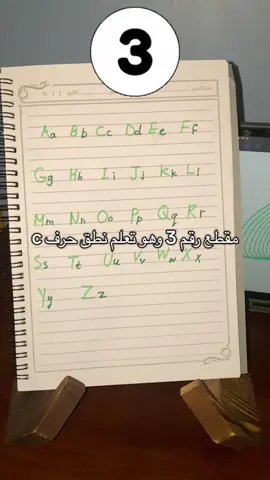 3
Aa Bb Cc Dd Ee Ff
Gg Hh Ii Jj Kk Ll
Mm Nn Oo Pp Qq Rr
مقطع رقم 3 وهو تعلم نطق حرف C
Ss Tt Uu Vv Ww Xx
Yy Zz